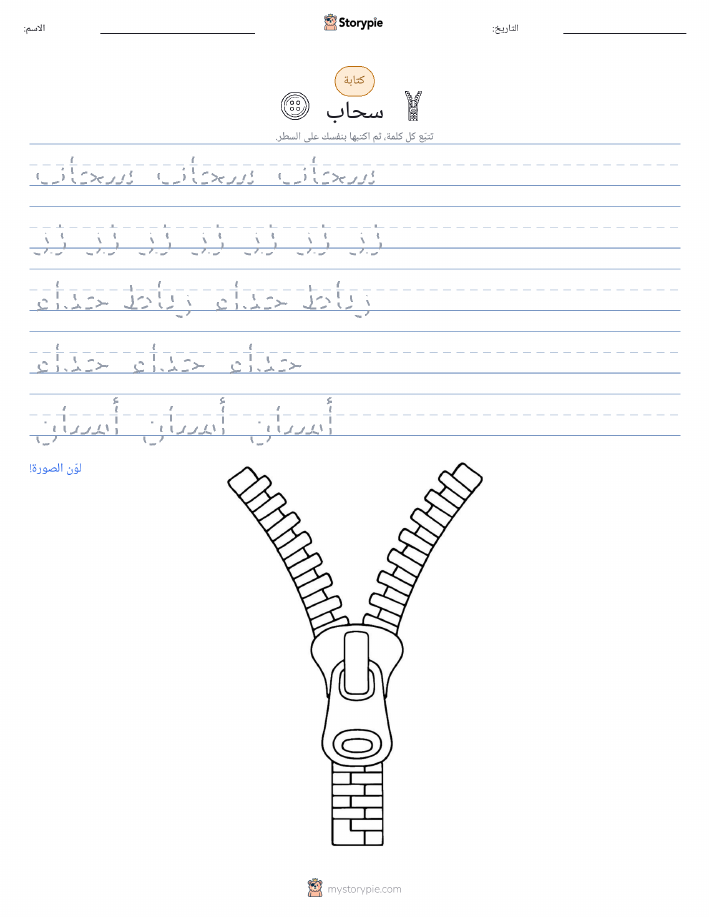 الاسم:
Storypie
التاريخ:
كتابة
سحاب
تتبّع كل كلمة، ثم اكتبها بنفسك على السطر.
سحاب سحاب سحاب
زر زر زر زر زر زر زر
رباط حذاء رباط حذاء
حذاء حذاء حذاء
أسنان أسنان أسنان
لوّن الصورة!
mystorypie.com